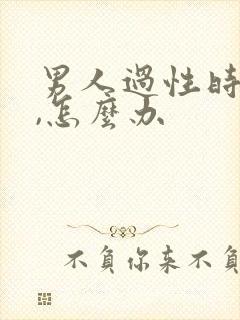 男人過性時
,怎麼办
不負你来不負